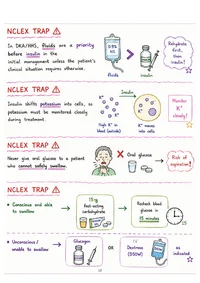 NCLEX TRAP
In DKA/HHS, fluids are a priority
before insulin in the
initial management unless the patient's
clinical situation requires otherwise.
0.9%
NS
fluids
insulin
Rehydrate
first,
then
insulin!
NCLEX TRAP
Insulin shifts potassium into cells, so
potassium must be monitored closely
during treatment.
Insulin
K+
High K+
blood (outside)
K+ moves
into cells
Monitor
K+
closely!
NCLEX TRAP
Never give oral glucose to a patient
who cannot safely swallow.
Oral
glucose
Risk of
aspiration!
NCLEX TRAP
Conscious and able
to swallow
15 g
fast-acting
carbohydrate
Recheck blood
glucose in
15 minutes
Unconscious /
unable to swallow
Glucagon
OR
IV
Dextrose
(D50W)
as
indicated